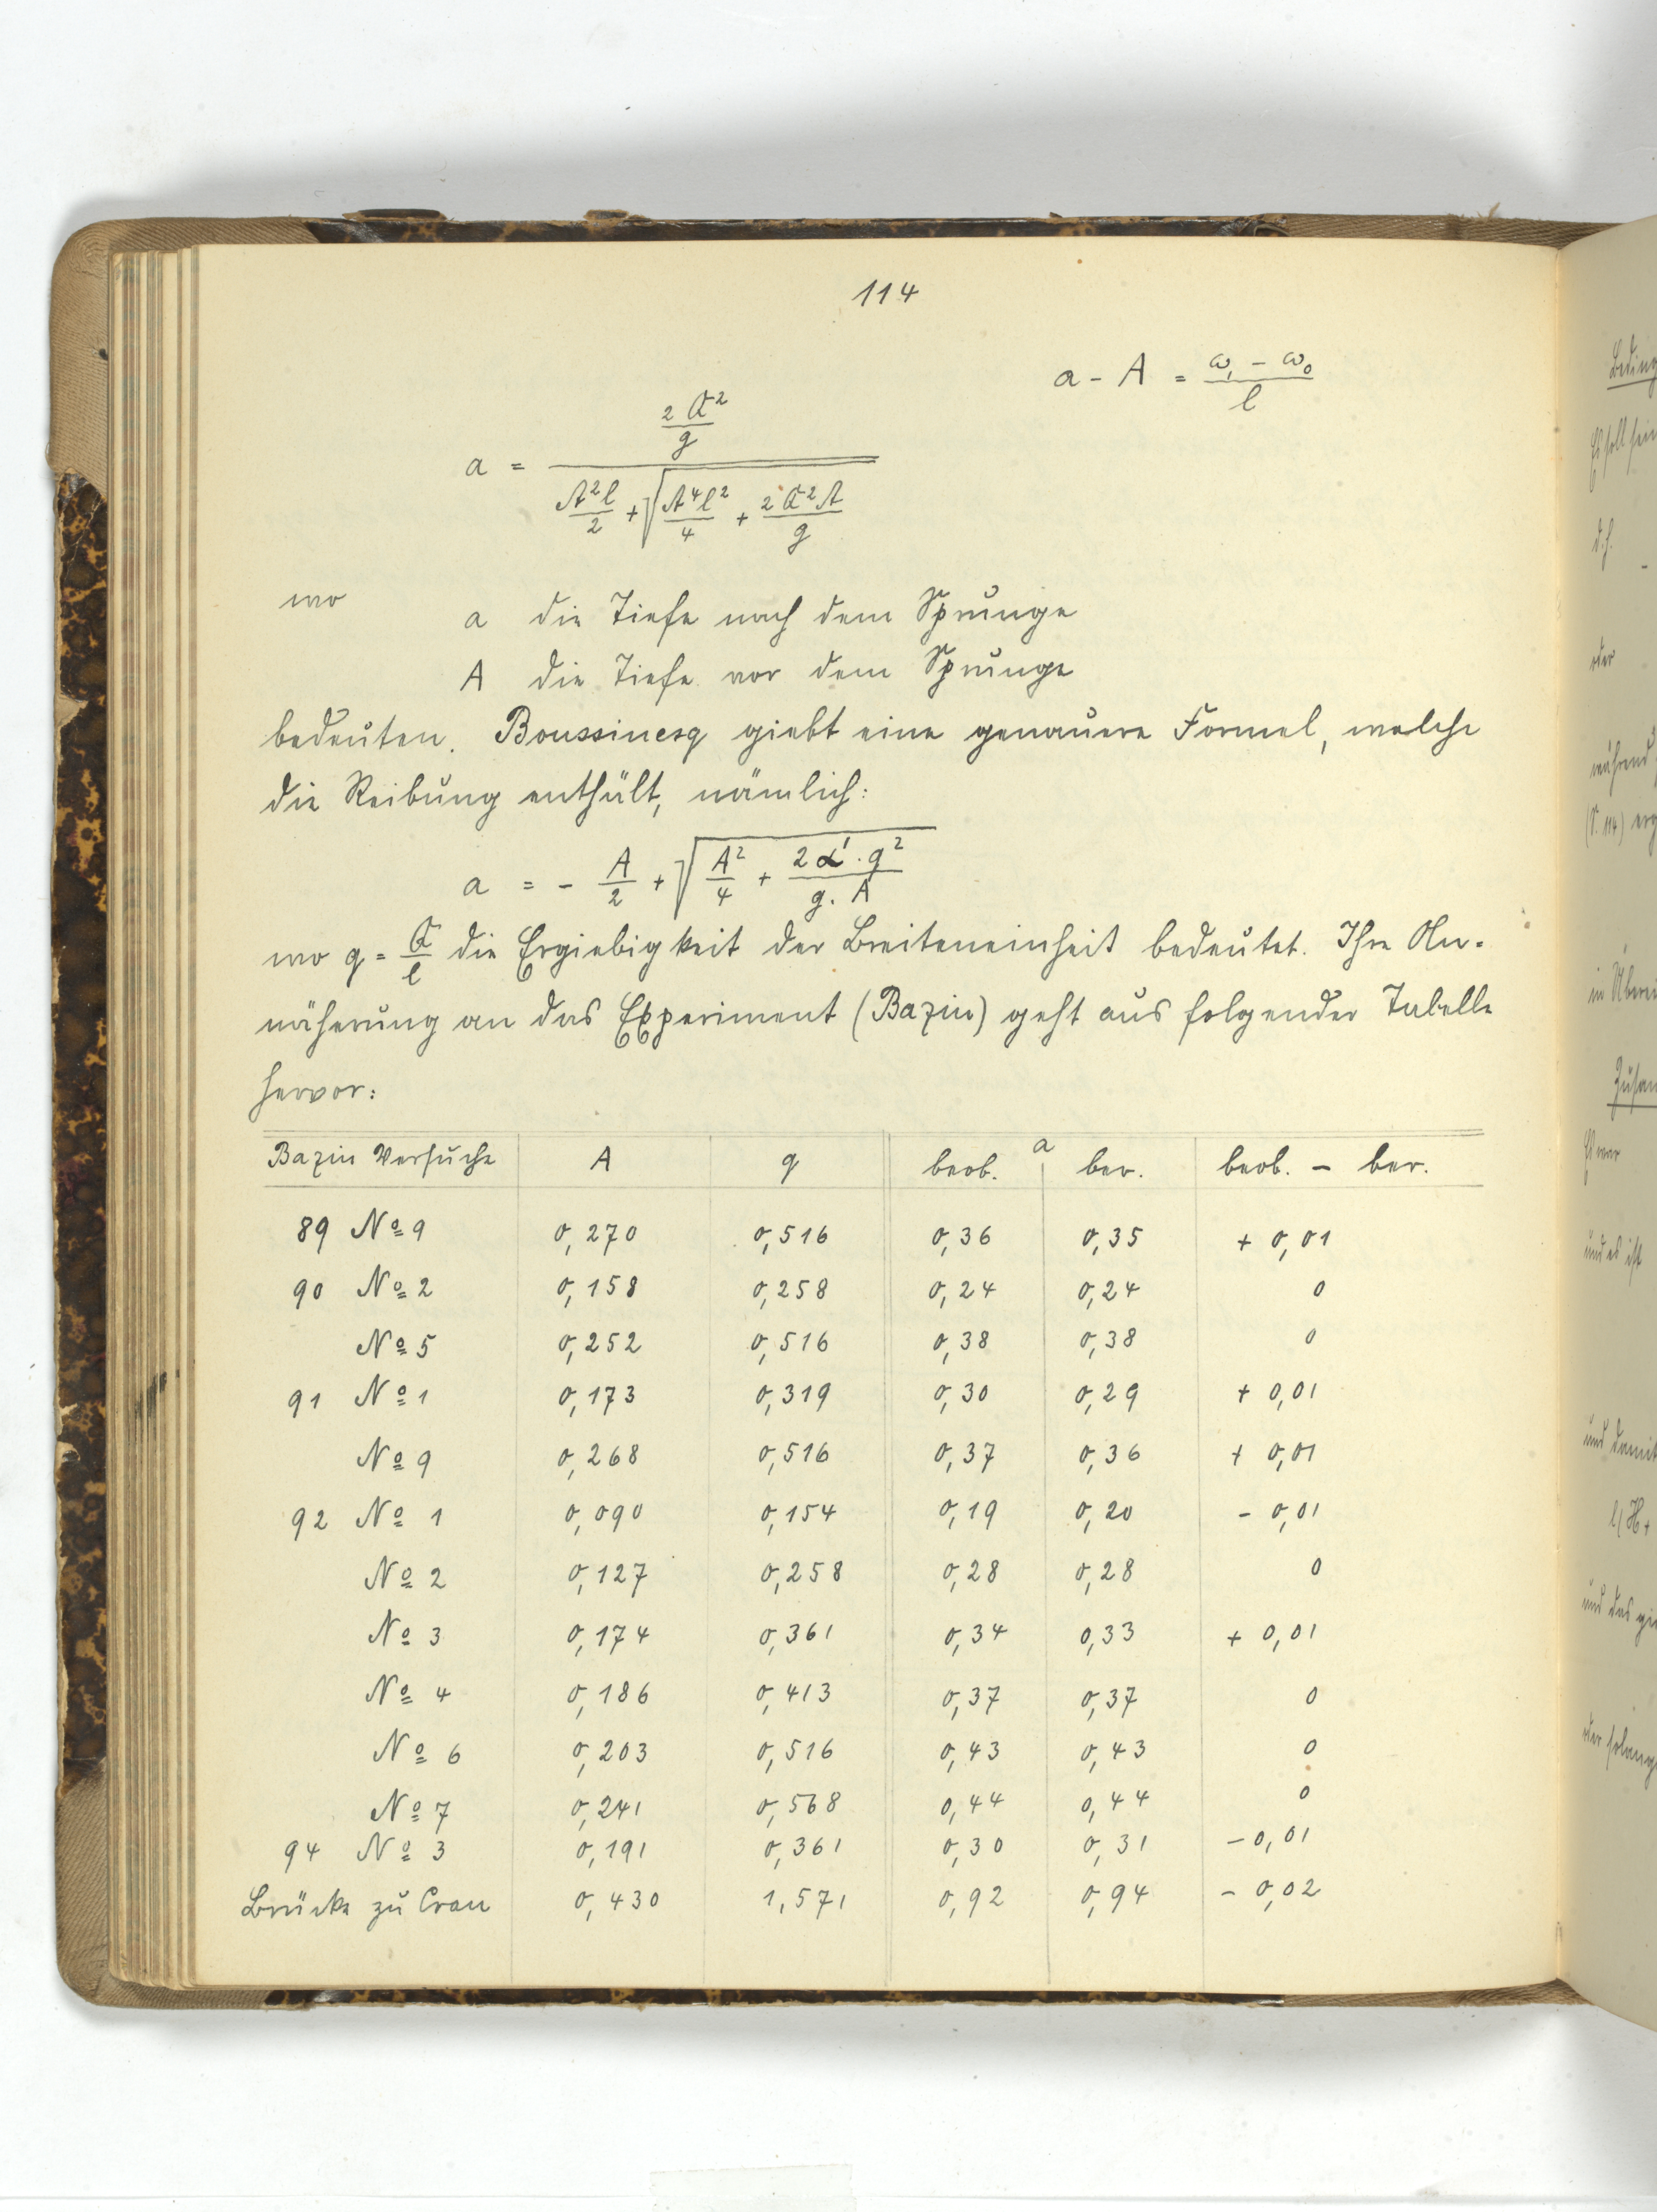 114
a - A = (ω₁ - ω₀)/l
a = (2Q²/g) / (A²l/2 + √(A⁴l²/4 + 2Q²A/g))
wo a die Tiefe nach dem Sprunge
A die Tiefe vor dem Sprunge
bedeuten. Boussinesq giebt eine genauere Formel, welche
die Reibung enthält, nämlich:
a = - A/2 + √(A²/4 + 2α'·q²/(g·A))
wo q = Q/l die Ergiebigkeit der Breiteneinheit bedeutet. Ihre An-
näherung an das Experiment (Bazin) geht aus folgender Tabelle
hervor:
Bazin Versuche A q a beob. ber. beob. - ber.
89 No 9 0,270 0,516 0,36 0,35 + 0,01
90 No 2 0,158 0,258 0,24 0,24 0
No 5 0,252 0,516 0,38 0,38 0
91 No 1 0,173 0,319 0,30 0,29 + 0,01
No 9 0,268 0,516 0,37 0,36 + 0,01
92 No 1 0,090 0,154 0,19 0,20 - 0,01
No 2 0,127 0,258 0,28 0,28 0
No 3 0,174 0,361 0,34 0,33 + 0,01
No 4 0,186 0,413 0,37 0,37 0
No 6 0,203 0,516 0,43 0,43 0
No 7 0,241 0,568 0,44 0,44 0
94 No 3 0,191 0,361 0,30 0,31 - 0,01
Brücke zu Cran 0,430 1,571 0,92 0,94 - 0,02
d.h.
oder
während
(S. 114)
und es ist
und damit